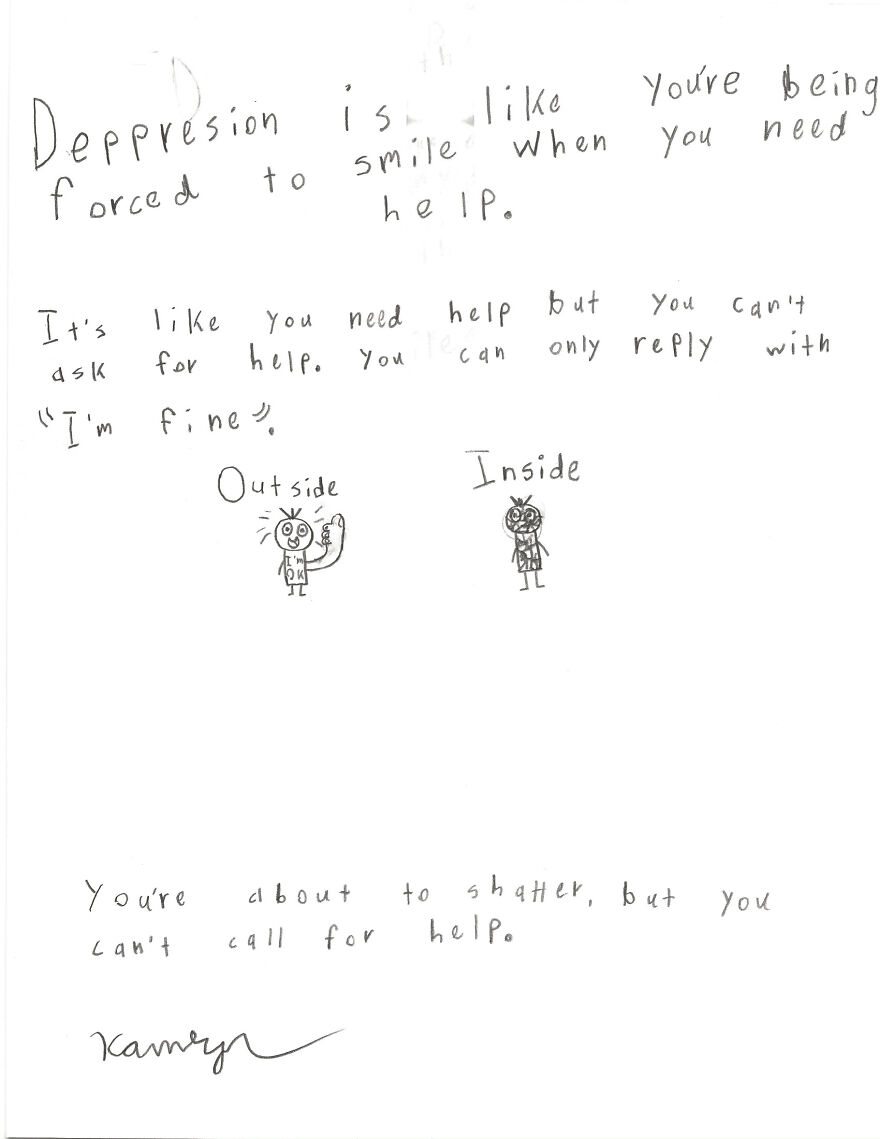 Deppresion is like you're being
forced to smile when you need
help.
It's like you need help but you can't
ask for help. You can only reply with
"I'm fine".
Outside
Inside
I'm
OK
You're about to shatter, but you
can't call for help.
Kamryn